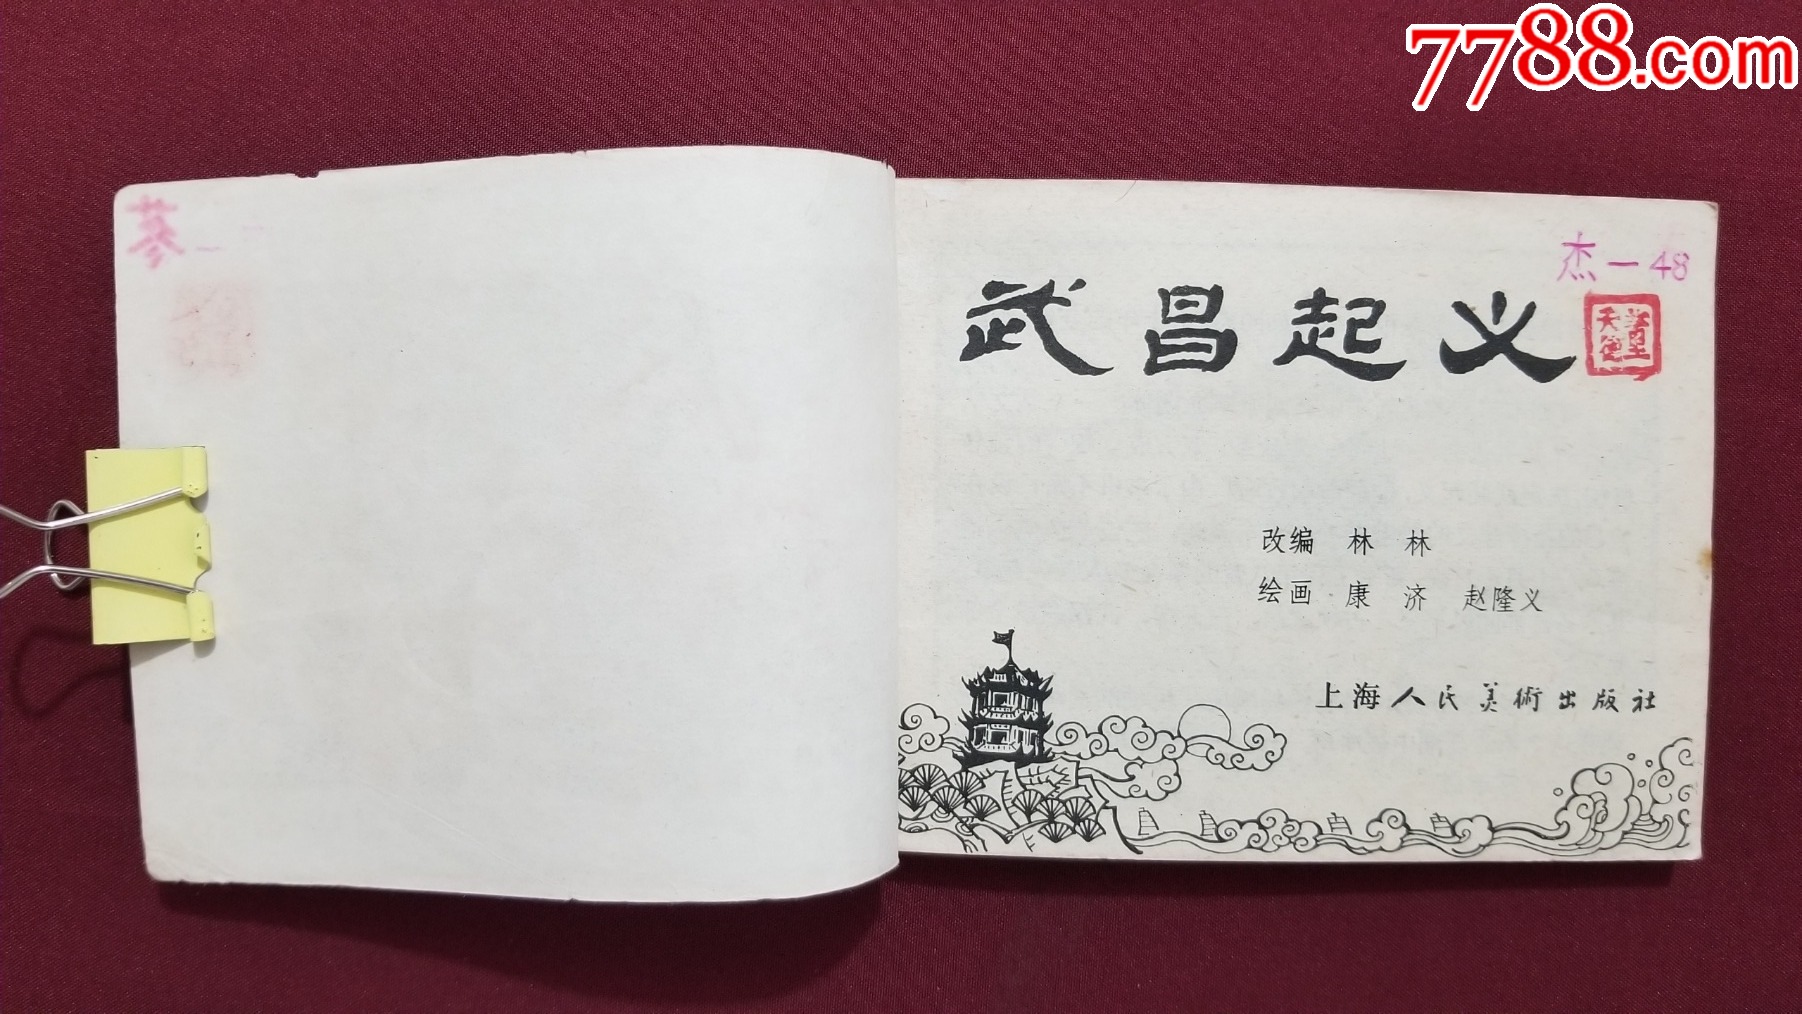 7788.com
杰－48
武昌起义
改编 林 林
绘画 康 济 赵隆义
上海人民美術出版社